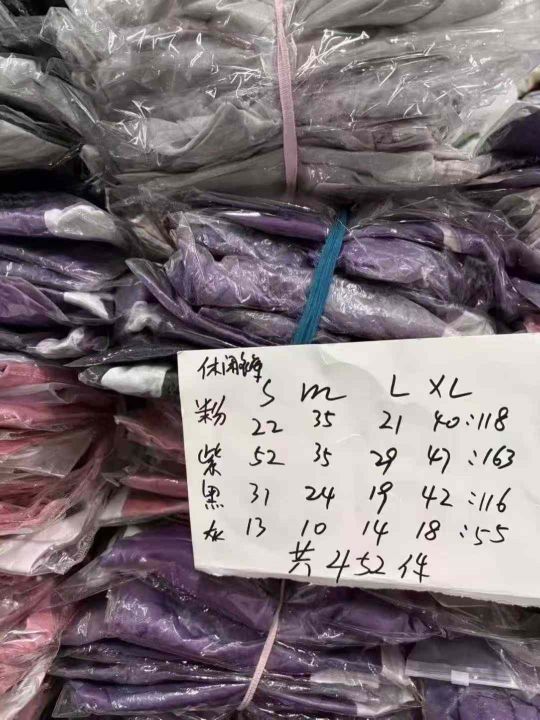 休闲裤
S M L XL
粉 22 35 21 40:118
紫 52 35 29 47:163
黑 31 24 19 42:116
灰 13 10 14 18:55
共452件